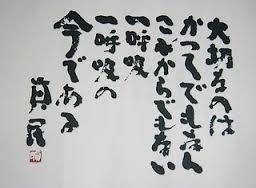 大切なのは
かつてでもなく
これからでもない
一呼吸
一呼吸の
今である
真民